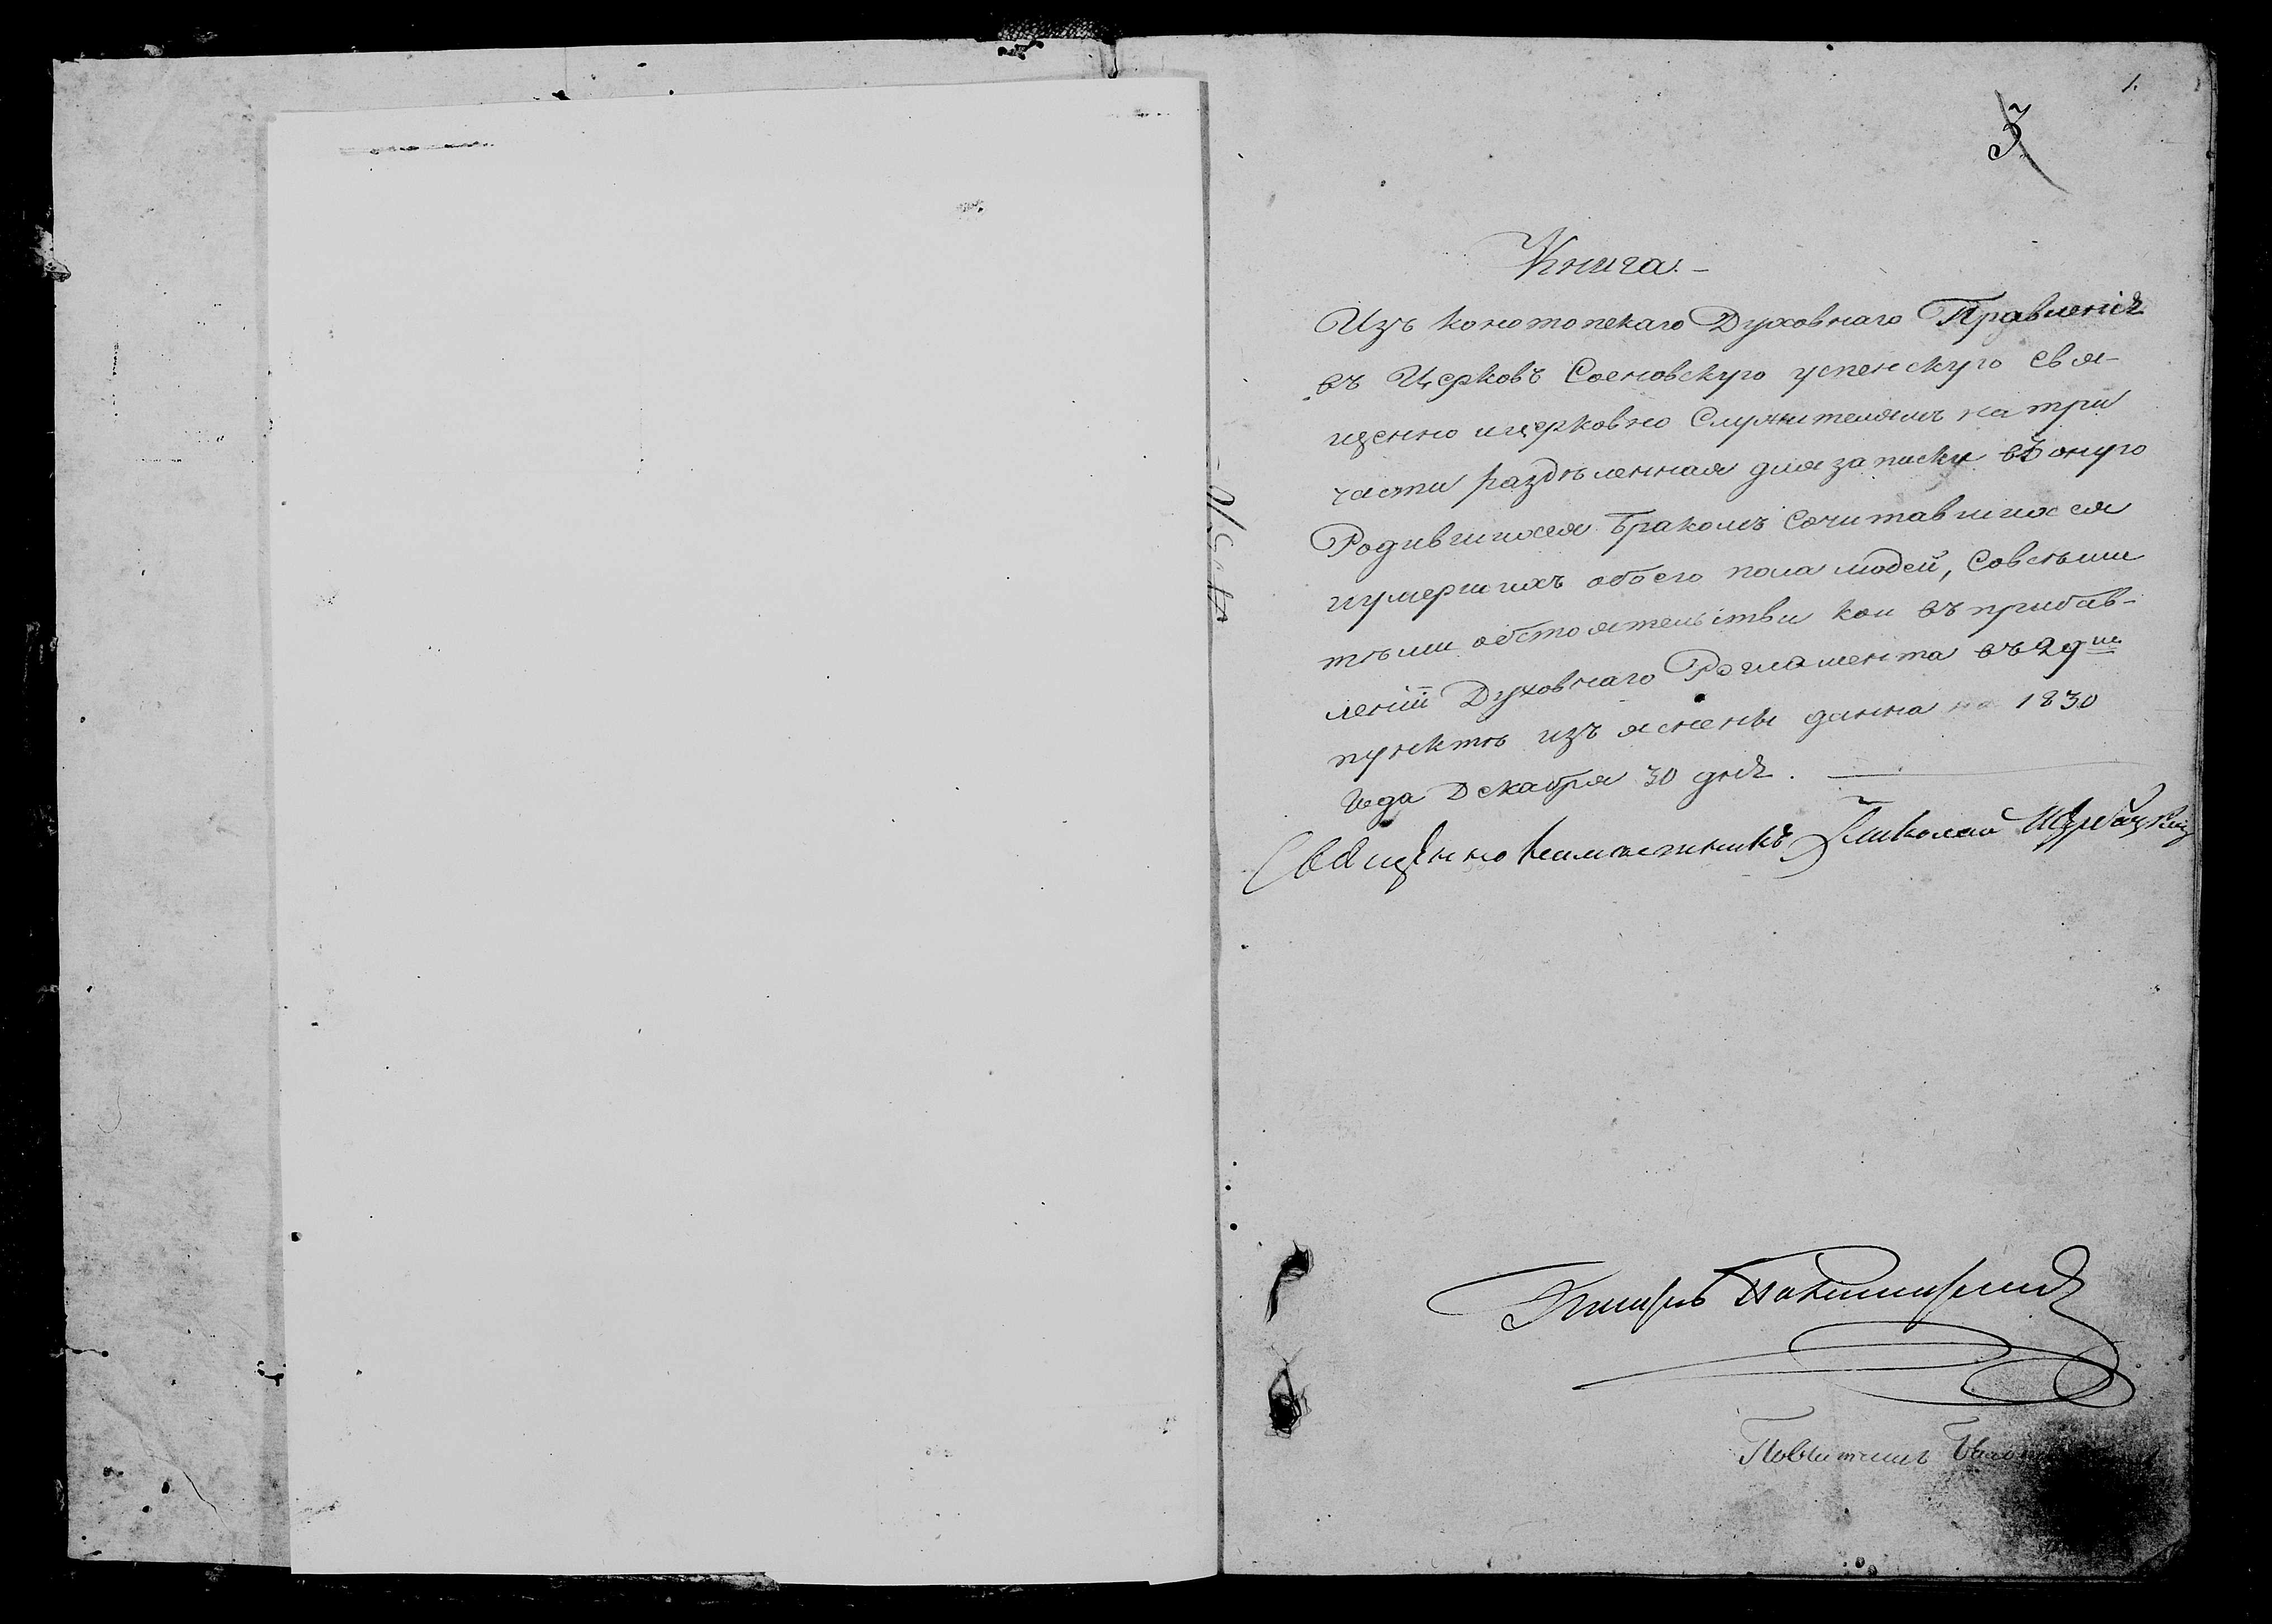 1.
3
Книга.
Изъ конотопскаго Духовнаго Правленія
въ Церковъ Сосновскую успенскую свя-
щенно ицерковно Служителямъ на три
части раздѣленная для записки въ оную
Родившихся бракомъ Сочитавшихся
иумершихъ обоего пола людей, Совсѣми
тѣми обстоятельстви кои въ прибав-
леніи Духовнаго Регламента въ 29 ми
пунктѣ изъяснены данна на 1830
Года Декабря 30 дня.
Священно намѣстникъ Николай
Повытчикъ